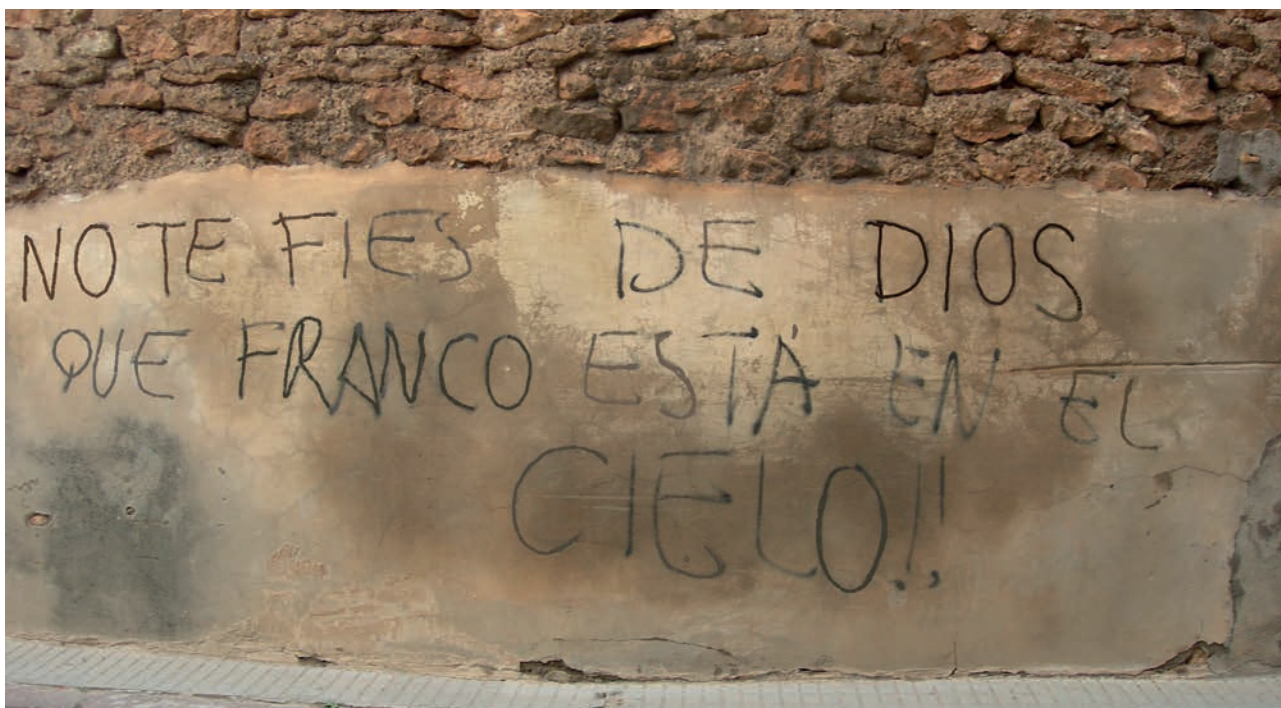 NO TE FIES DE DIOS
QUE FRANCO ESTÁ EN EL
CIELO!!